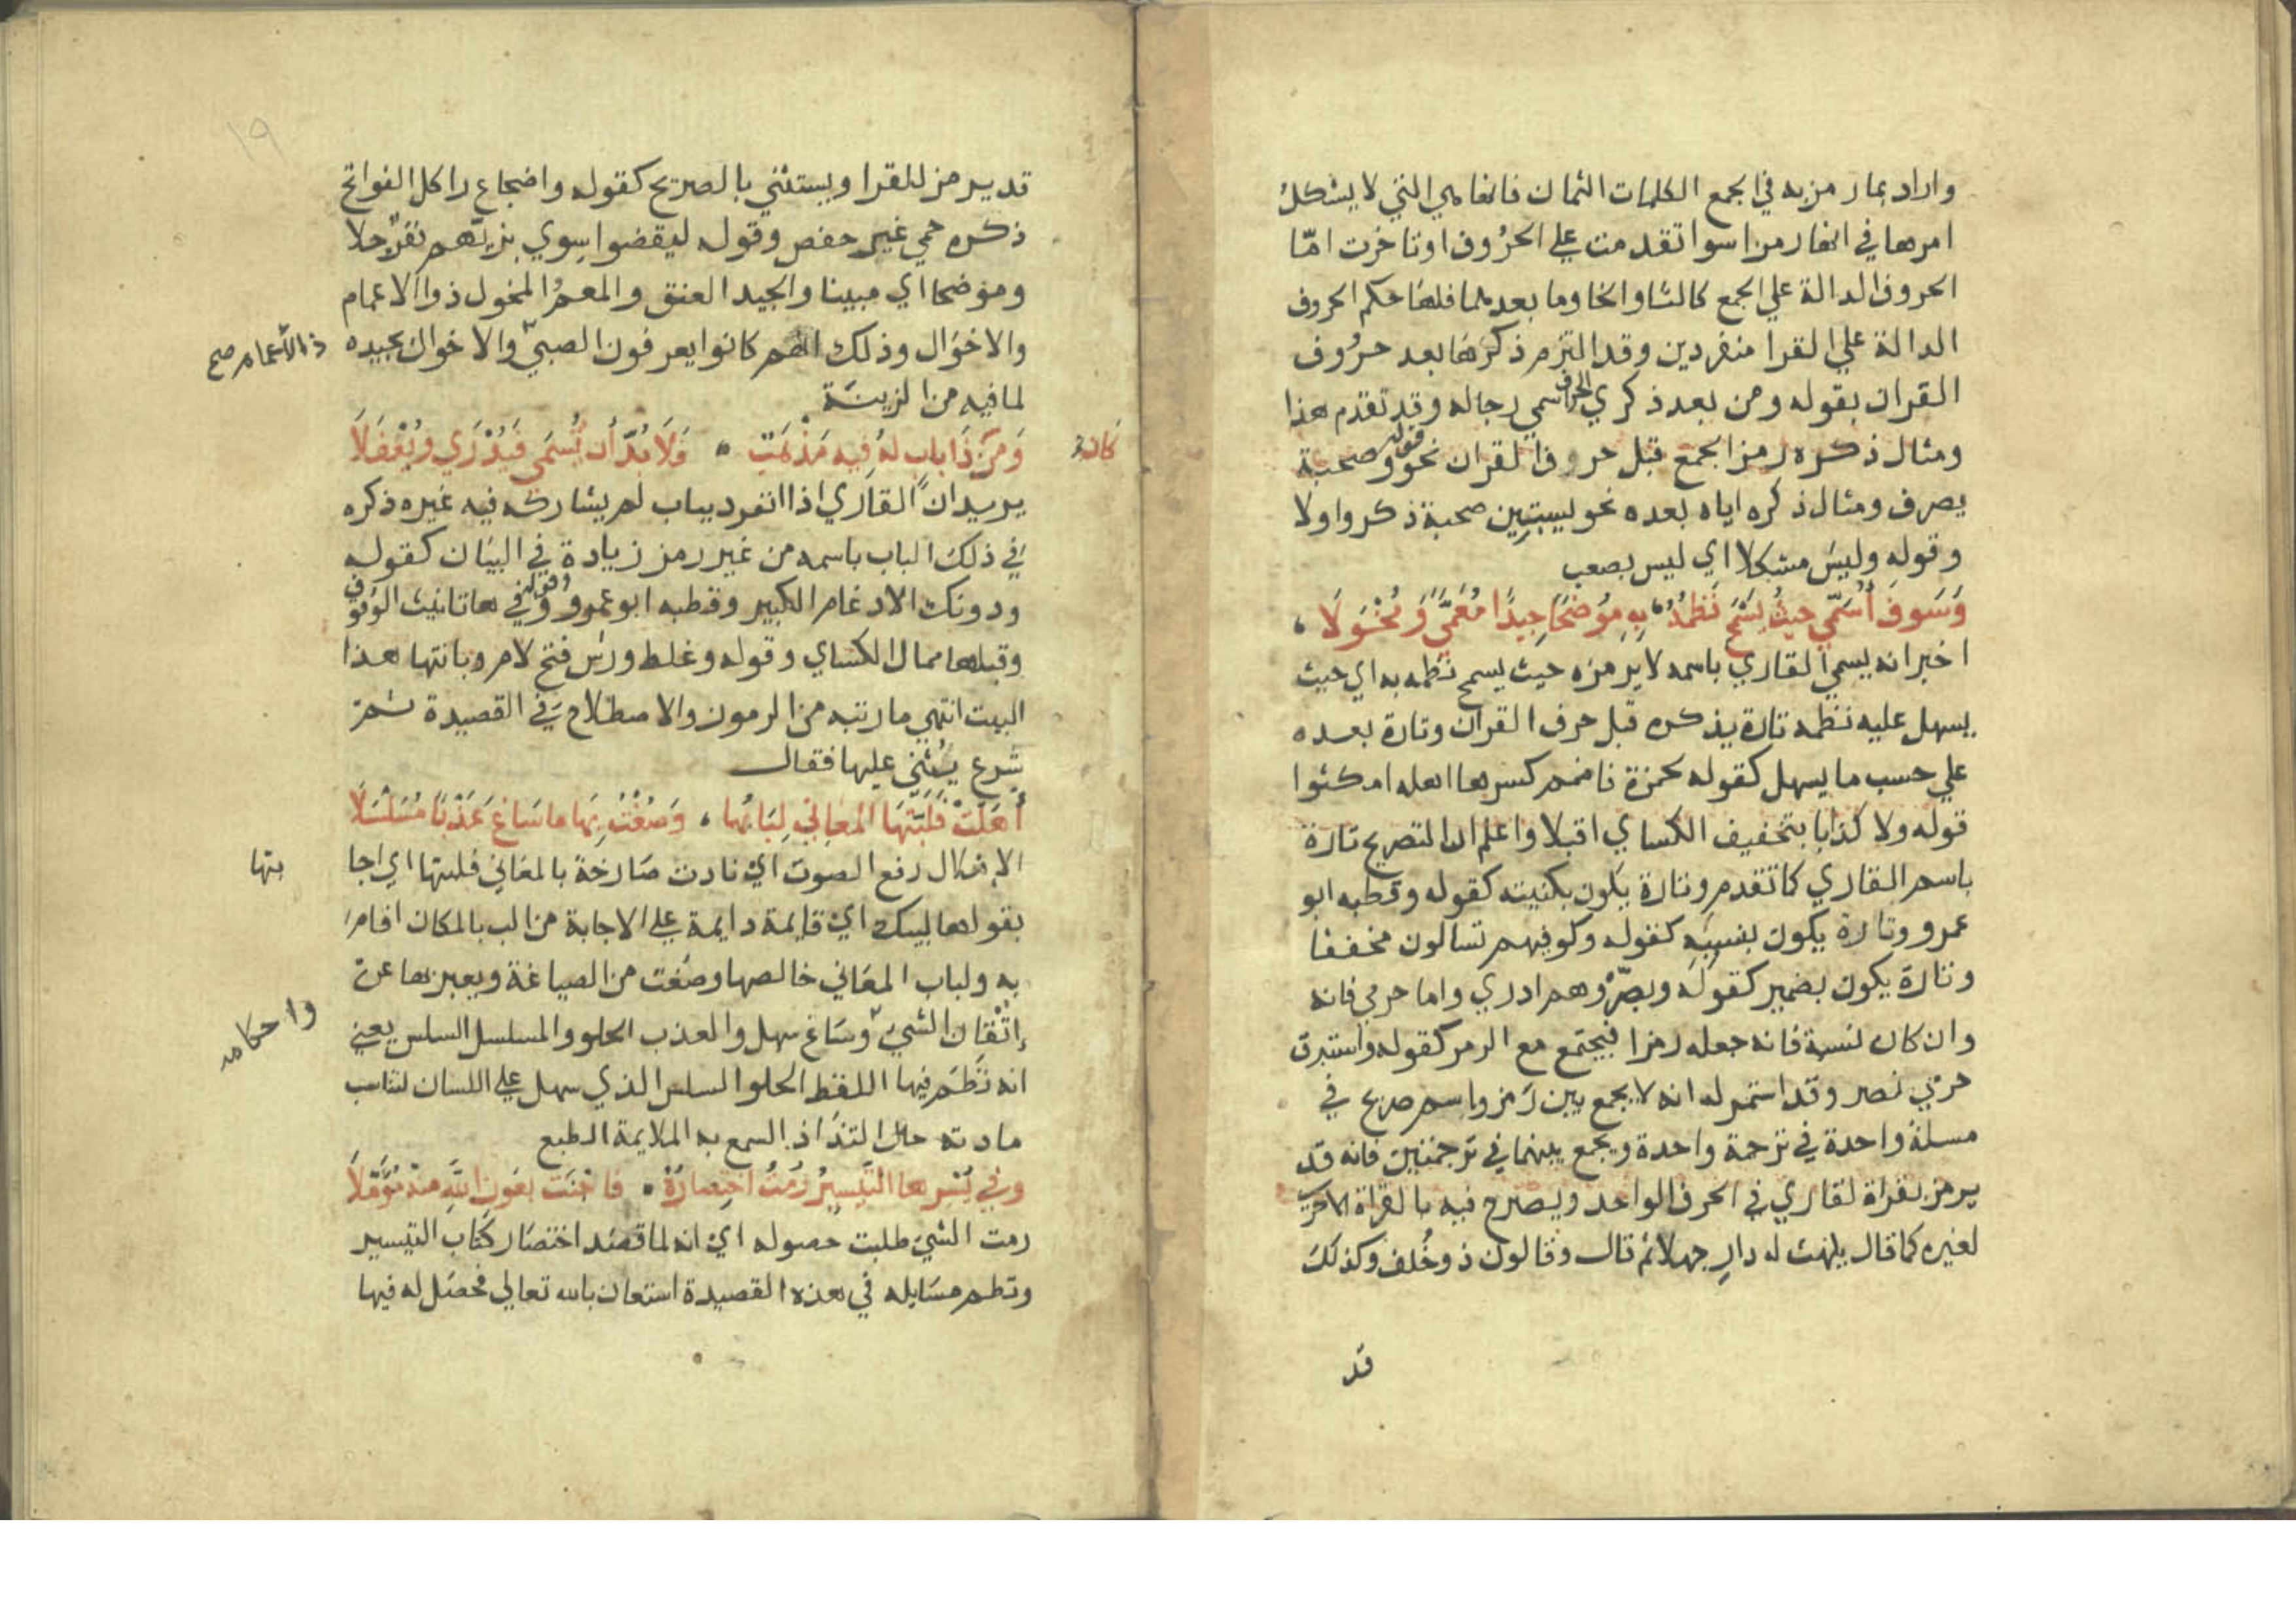 واراد بما رمز به في الجمع الكلمات الثمان فانها هي التي لا يشكل
امرها في انها رمز سوا تقدمت علي الحروف او تاخرت امّا
الحروف الدالة علي الجمع كالثا والخا وما بعدهما فلها حكم الحروف
الدالة علي القرا منفردين وقد التزم ذكرها بعد حروف
القران بقوله ومن بعد ذكري الحرف اسمي رجاله وقد تقدم هذا
ومثال ذكره رمز الجمع قبل حروف القران نحو قوله وصحبة
يصرف ومثال ذكره اياه بعده نحو ليستبين صحبة ذكروا ولا
وقوله وليس مشكلا اي ليس بصعب
وَسَوفَ أُسَمّي حيثُ يَسْمَحُ نَظمُهُ بِهِ مُوْضحًا جِيدًا مُعَمًّا وَمُخْوَلَا
اخبر انه يسمي القاري باسمه لا يرمزه حيث يسمح نظمه به اي حيث
يسهل عليه نظمه تارة يذكره قبل حرف القران وتارة بعده
علي حسب ما يسهل كقوله لحمزة فاضمم كسرها اهله امكثوا
قوله ولا كذابا بتخفيف الكساي اقبلا واعلم ان التصريح تارة
باسم القاري كما تقدم وتارة يكون بكنيته كقوله وقطبه ابو
عمرو وتارة يكون بنسبه كقوله وكوفيهم تسالون مخففا
وتارة يكون بضمير كقوله وبصرٍ وهم ادري واما حرمي فانه
وان كان نسبة فانه جعله رمزا فيجتمع مع الرمز كقوله واستبرق
حرمي نصر وقد استمر له انه لا يجمع بين رمز واسم صريح في
مسلة واحدة في ترجمة واحدة ويجمع بينهما في ترجمتين فانه قد
يرمز بقراة لقاري في الحرف الواحد ويصرح فيه بالقراة الاخري
لغيره كما قال يلهث له دارِ جهلا ثم قال وقالون ذو خُلف وكذلك
قد
١٩
قد يرمز للقرا ويستثني بالصريح كقوله واضجاع را كل الفواتح
ذكره حمي غير حفص وقوله ليقضوا سوي بزيهم نفر جلا
وموضحا اي مبينا والجيد العنق والمعم المخول ذو الاعمام
والاخوال وذلك انهم كانوا يعرفون الصبي والاخوال بجيده
ذا الاعمام صح
لما فيه من الزينة
وَمَن ذَا بابٍ لهُ فيه مَذْهَبٌ فَلَا بُدّ أن يُسمَى فَيُدْرَي ويُعْقَلَا
كان
يريد ان القاري اذا انفرد بباب لم يشاركه فيه غيره ذكره
في ذلك الباب باسمه من غير رمز زيادة في البيان كقوله
ودونك الادغام الكبير وقطبه ابو عمرو وقوله وفي ها تانيث الوقوف
وقبلها ممال الكساي وقوله وغلظ ورش فتح لام وبانتها هذا
البيت انتهي ما رتبه من الرموز والاصطلاح في القصيدة ثم
شرع يُثني عليها فقال
أَهَلّتْ فَلَبَّتْهَا المَعاني لِبَابُها وَصُغْتُ بِهَا ما سَاغَ عَذْبًا مُسَلْسَلَا
الاهلال رفع الصوت اي نادت صارخة بالمعاني فلبتها اي اجا
بتها
بقولها لبيك اي قايمة دايمة علي الاجابة من الب بالمكان اقام
به ولباب المعاني خالصها وصغت من الصياغة ويعبر بها عن
إتْقان الشي وساغ سهل والعذب الحلو والمسلسل السلس يعني
واحكامه
انه نظم فيها اللفظ الحلو السلس الذي سهل علي اللسان لتناسب
مادته حال التذاذ السمع به الملايمة الطبع
وفي يُسْرِها التَّيْسِيرُ رُمْتُ اخْتِصَارَهُ فاجْنَت بعَونِ اللَّهِ منهُ مُؤَمَّلَا
رمت الشي طلبت حصوله اي انه لما قصد اختصار كتاب التيسير
ونظم مسايله في هذه القصيدة استعان بالله تعالي فحصل له فيها